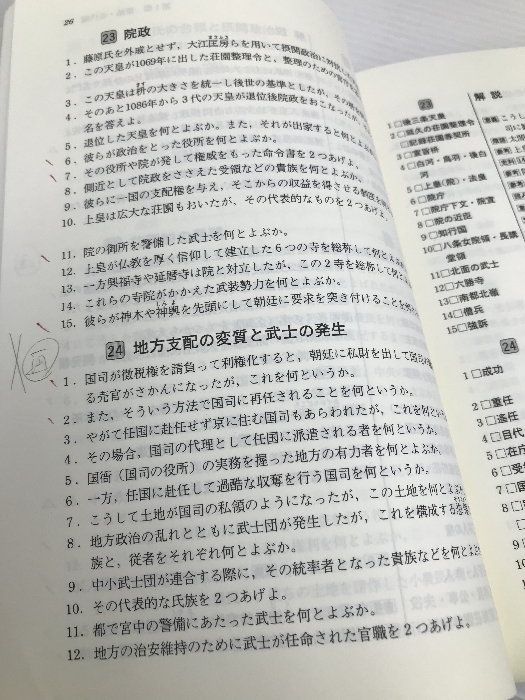 26
23 院政
1. 藤原氏を外戚とせず，大江匡房らを用いて摂関政治に
2. この天皇が1069年に出した荘園整理令と，整理のための
3. この天皇は枡の大きさを統一し後世の基準としたが，その
4. そのあと1086年から3代の天皇が退位後院政をおこなったが，
名を答えよ。
5. 退位した天皇を何とよぶか。また，それが出家すると何とよ
6. 彼らが政治をとった役所を何とよぶか。
7. その役所や院が発して権威をもった命令書を2つあげよ。
8. 側近として院政をささえた受領などの貴族を何とよぶか。
9. 彼らに一国の支配権を与え，そこからの収益を得させる制度を
10. 上皇は広大な荘園もおいたが，その代表的なものを2つあげよ。
11. 院の御所を警備した武士を何とよぶか。
12. 上皇が仏教を厚く信仰して建立した6つの寺を総称して何と
13. 一方興福寺や延暦寺は院と対立したが，この2寺を総称して何と
14. これらの寺院がかかえた武装勢力を何とよぶか。
15. 彼らが神木や神輿を先頭にして朝廷に要求を突き付けることを
24 地方支配の変質と武士の発生
1. 国司が徴税権を請負って利権化すると，朝廷に私財を出して
る売官がさかんになったが，これを何というか。
2. また，そういう方法で国司に再任されることを何というか。
3. やがて任国に赴任せず京に住む国司もあらわれたが，これを何とい
4. その場合，国司の代理として任国に派遣される者を何というか。
5. 国衙（国司の役所）の実務を握った地方の有力者を何とよぶか。
6. 一方，任国に赴任して過酷な収奪を行う国司を何というか。
7. こうして土地が国司の私領のようになったが，この土地を何とよぶか
8. 地方政治の乱れとともに武士団が発生したが，これを構成する
族と，従者をそれぞれ何とよぶか。
9. 中小武士団が連合する際に，その統率者となった貴族などを何と
10. その代表的な氏族を2つあげよ。
11. 都で宮中の警備にあたった武士を何とよぶか。
12. 地方の治安維持のために武士が任命された官職を2つあげよ。
23
解説
1□後三条天皇
2□延久の荘園整理令
□記録荘園券契所
3□宣旨枡
4□白河・鳥羽・後白
河
5□上皇（院）・法皇
6□院庁
7□院庁下文・院宣
8□院の近臣
9□知行国
10□八条女院領・長講
堂領
11□北面の武士
12□六勝寺
13□南都北嶺
14□僧兵
15□強訴
24
1□成功
2□重任
3□遙任
4□目代
5□在庁
6□受
7□国
8□
9
10
11
12